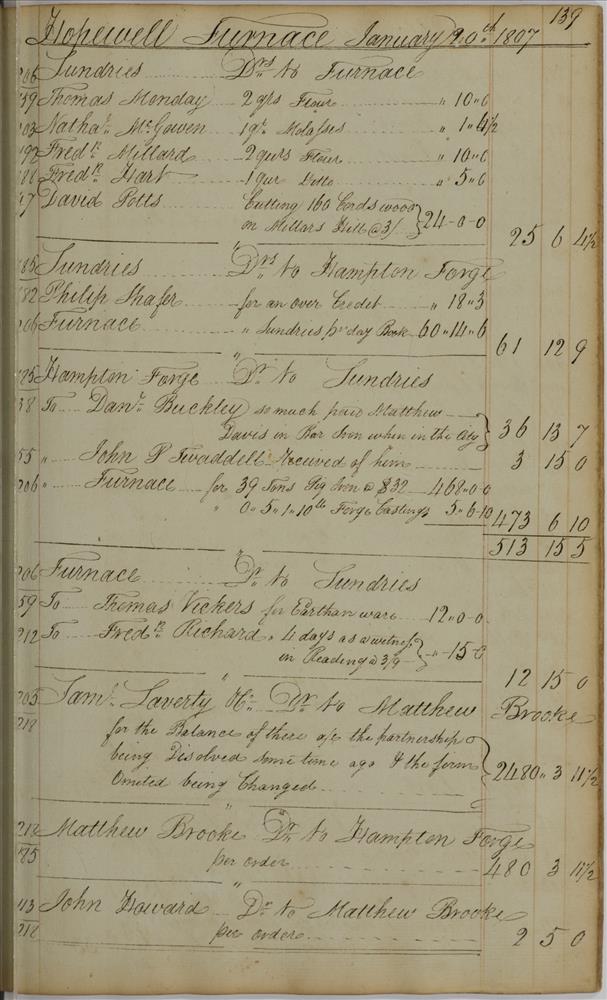 139
Hopewell Furnace January 20th 1807
206 Sundries Drs to Furnace
59 Thomas Monday 2 qrs Flour " 10 " 6
03 Nathal. McGowen 1 qr. Molasses " 1 " 4½
92 Fredk. Millard 2 qurs Flour " 10 " 6
88 Fredk. Hart 1 qur Ditto " 5 " 6
47 David Potts Cutting 160 Cords wood
on Millars Hill @ 3/ 24-0-0
25 6 4½
"
85 Sundries Drs to Hampton Forge
82 Philip Shafer for an over Credit " 18 " 3
206 Furnace " Sundries pr day Book 60 " 14 " 6
61 12 9
"
85 Hampton Forge Dr to Sundries
38 To Danl. Buckley so much paid Matthew
Davis in Bar Iron when in the City 36 13 7
55 " John P Twaddell Received of him 3 15 0
206 " Furnace for 39 Tons Pig Iron @ $32 468 " 0-0
" 0 " 5 " 1 " 10 lb Forge Castings 5 " 6-10
473 6 10
513 15 5
"
206 Furnace Dr to Sundries
59 To Thomas Vickers for Earthan ware 12 " 0-0
212 To Fredk. Richard " 4 days as a witness
in Reading @ 3/9 - " - 15-0
12 15 0
"
205 Saml. Laverty &Co Dr to Matthew Brooke
218 for the Balance of there a/c the partnership
being Disolved some time ago & the firm
Omited being Changed 2480 " 3 11½
"
218 Matthew Brooke Dr to Hampton Forge
185 per order 480 3 11½
"
113 John Howard Dr to Matthew Brooke
218 per order 2 5 0